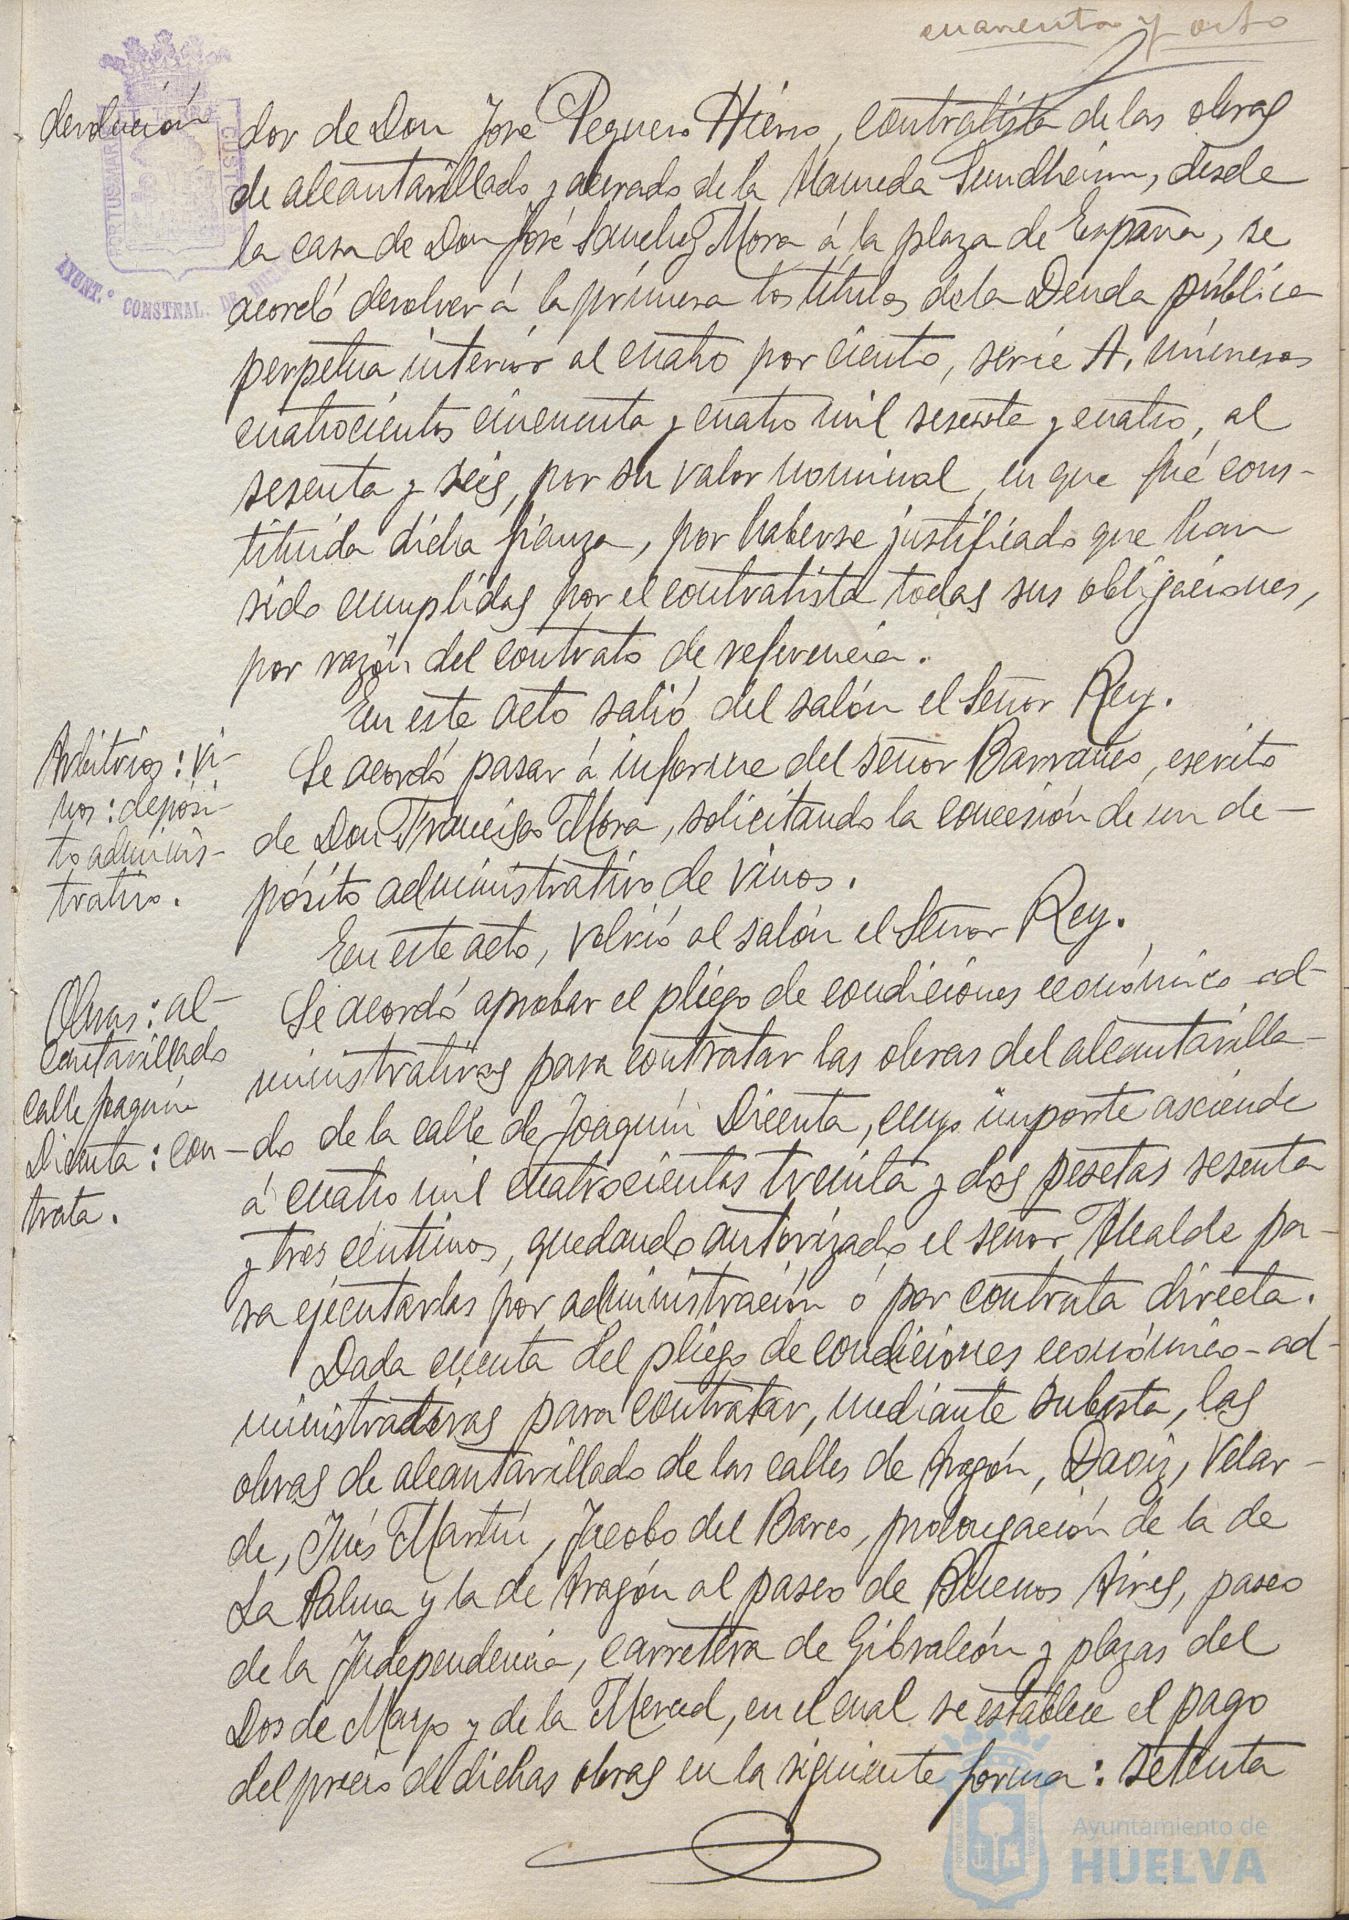 cuarenta y ocho
devolución
dor de Don José Peguero Hierro, contratista de las obras
de alcantarillado y acerado de la Alameda Sundheim, desde
la casa de Don José Sanchez Mora á la plaza de España, se
acordó devolver á la primera los títulos de la Deuda pública
perpetua interior al cuatro por ciento, serie A. números
cuatrocientos cincuenta y cuatro mil sesenta y cuatro, al
sesenta y seis, por su valor nominal, en que fué cons-
tituida dicha fianza, por haberse justificado que han
sido cumplidas por el contratista todas sus obligaciones,
por razón del contrato de referencia.
En este acto salió del salón el Señor Rey.
Arbitrios: vi-
nos: depósi-
to adminis-
trativo.
Se acordó pasar á informe del señor Barrantes, escrito
de Don Francisco Mora, solicitando la concesión de un de-
pósito administrativo de vinos.
En este acto, volvió al salón el Señor Rey.
Obras: al-
cantarillado
calle Joaquín
Dicenta: con-
trata.
Se acordó aprobar el pliego de condiciones económico-ad-
ministrativas para contratar las obras del alcantarilla-
do de la calle de Joaquín Dicenta, cuyo importe asciende
á cuatro mil cuatrocientas treinta y dos pesetas sesenta
y tres céntimos, quedando autorizado el señor Alcalde pa-
ra ejecutarlas por administración ó por contrata directa.
Dada cuenta del pliego de condiciones económico-ad-
ministrativas para contratar, mediante subasta, las
obras de alcantarillado de las calles de Aragón, Daoiz, Velar-
de, Inés Martín, Jacobo del Barco, prolongación de la de
La Palma y la de Aragón al paseo de Buenos Aires, paseo
de la Independencia, carretera de Gibraleón y plazas del
Dos de Mayo y de la Merced, en el cual se establece el pago
del precio de dichas obras en la siguiente forma: setenta
PORTUS MARIS ET TERRÆ CUSTO
AYUNT.º CONSTNAL. DE HUELVA
Ayuntamiento de
HUELVA